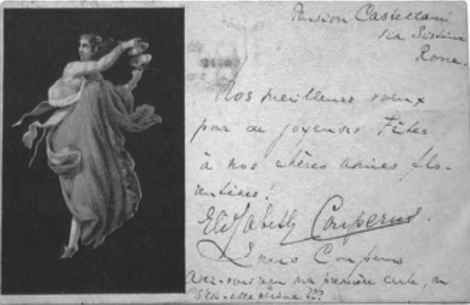 Pension Castellani
Via Sistina
Rome.
Nos meilleurs voeux
pour de joyeuses Fêtes
à nos chères amies flo-
rentines!
Elisabeth Couperus.
Louis Couperus
Avez-vous reçu ma première carte, ou
s'est-elle ???